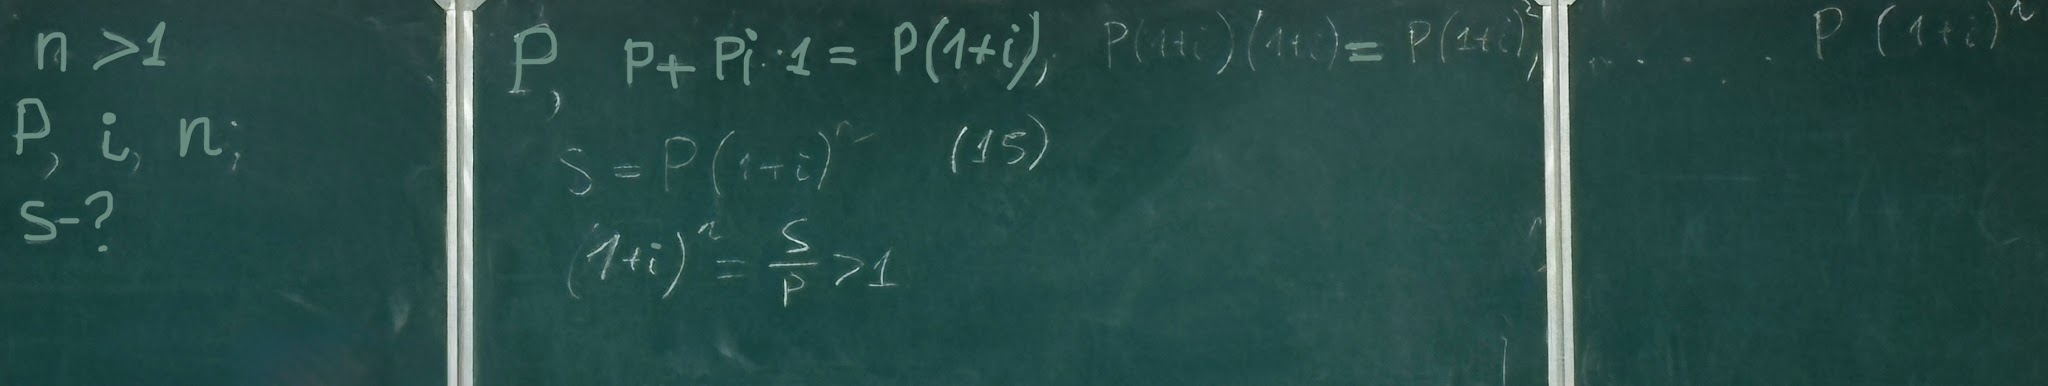 n >1
P, i, n;
S-?
P, P+ Pi·1 = P(1+i), P(1+i)(1+i) = P(1+i)², ....... P (1+i)ⁿ
S = P(1+i)ⁿ (15)
(1+i)ⁿ = S/P >1